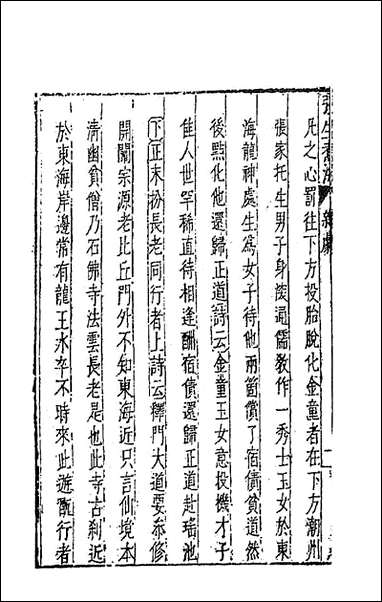 張生煮海　雜劇
凡之心罰往下方投胎脫化金童者在下方潮州
張家托生男子身深通儒教作一秀士玉女於東
海龍神處生爲女子待他兩箇償了宿債貧道然
後㸃化他還歸正道詩云金童玉女意投機才子
佳人世罕稀直待相逢酬宿債還歸正道赴瑤池
下正末扮長老同行者上詩云釋門大道要叅修
開闡宗源老比丘門外不知東海近只言仙境本
清幽貧僧乃石佛寺法雲長老是也此寺古刹近
於東海岸邊常有龍王水卒不時來此遊翫行者